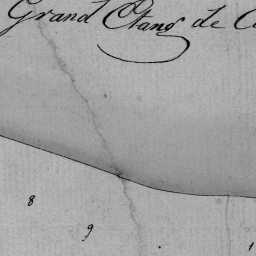 Grand Etang de
8
9
1